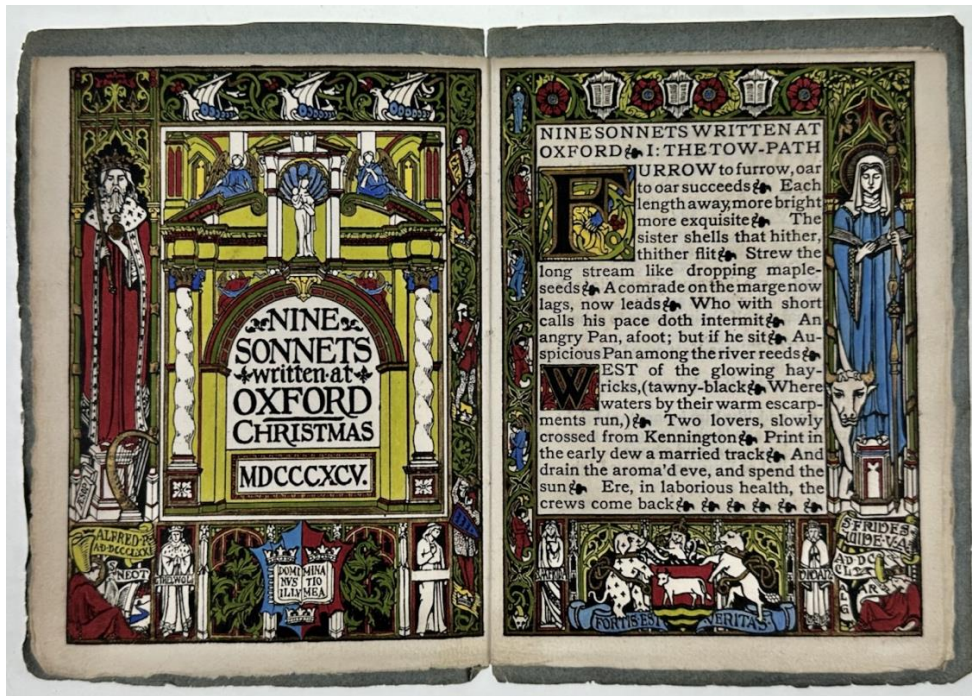 NINE
SONNETS
written·at
OXFORD
CHRISTMAS
MDCCCXCV.
S NEOT
DOMI MINA
NVS TIO
ILLV MEA
NINE SONNETS WRITTEN AT
OXFORD I: THE TOW-PATH
FURROW to furrow, oar
to oar succeeds Each
length away, more bright
more exquisite The
sister shells that hither,
thither flit Strew the
long stream like dropping maple-
seeds A comrade on the marge now
lags, now leads Who with short
calls his pace doth intermit An
angry Pan, afoot; but if he sit Au-
spicious Pan among the river reeds
WEST of the glowing hay-
ricks, (tawny-black Where
waters by their warm escarp-
ments run,) Two lovers, slowly
crossed from Kennington Print in
the early dew a married track And
drain the aroma'd eve, and spend the
sun Ere, in laborious health, the
crews come back
FORTIS·EST VERITAS
S·FRIDES